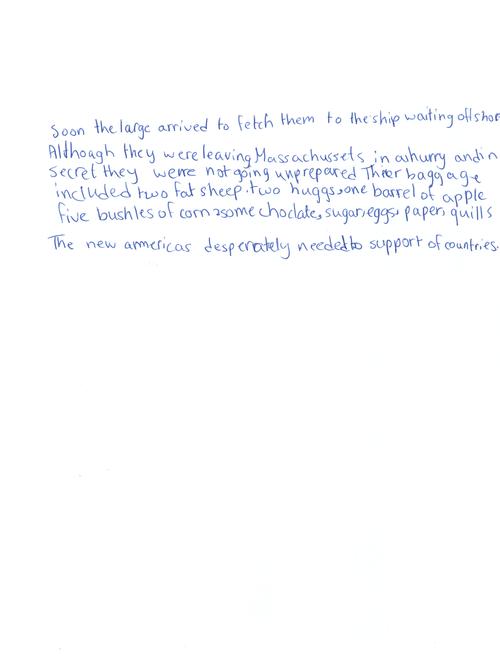 Soon the large arrived to fetch them to the ship waiting offshor
Although they were leaving Massachussets in a hurry and in
secret they were not going unprepared Thier baggage
included two fat sheep. two huggs, one barrel of apple
five bushles of corn, some choclate, sugar, eggs, paper, quills
The new armericas desperately needed to support of countries.